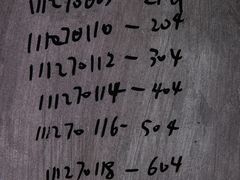 111070110 – 204
111270112 – 304
111270114 – 404
111270116 – 504
111270118 – 604